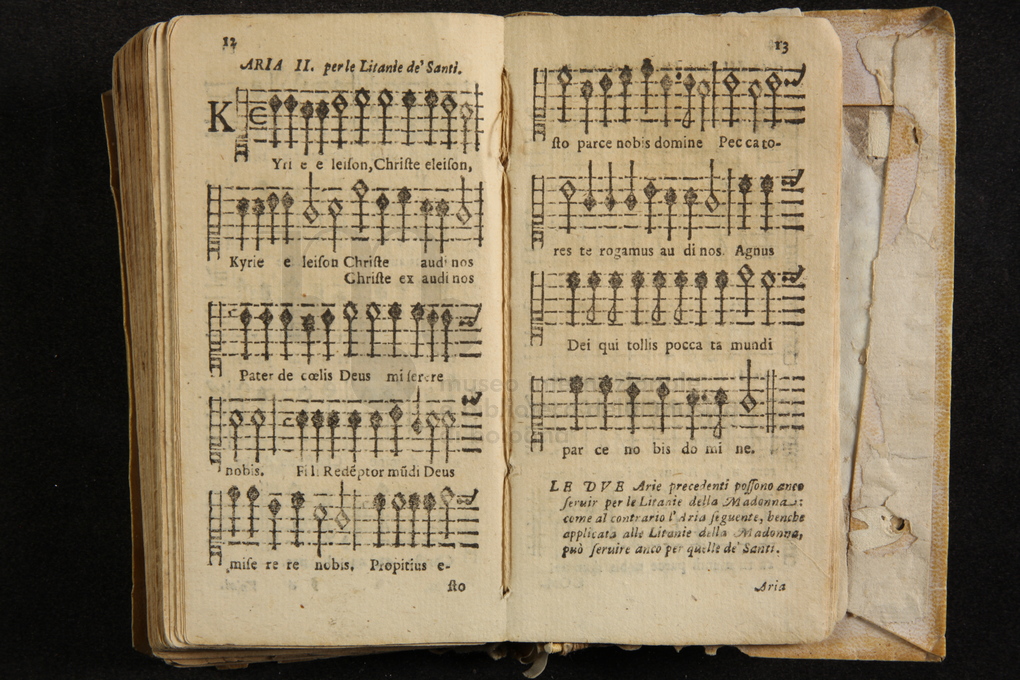 12
ARIA II. per le Litanie de' Santi.
K
Yri e e leiſon, Chriſte eleiſon,
Kyrie e leiſon Chriſte audi nos
Chriſte ex audi nos
Pater de cœlis Deus mi ſerere
nobis. Fili Redẽptor mũdi Deus
miſe re re nobis. Propitius e-
ſto
13
ſto parce nobis domine Pec ca to-
res te rogamus au di nos. Agnus
Dei qui tollis pocca ta mundi
par ce no bis do mi ne.
LE DVE Arie precedenti poſſono anco
ſeruir per le Litanie della Madonna:
come al contrario l'Aria ſeguente, benche
applicata alle Litanie della Madonna,
può ſeruire anco per quelle de' Santi.
Aria
museo